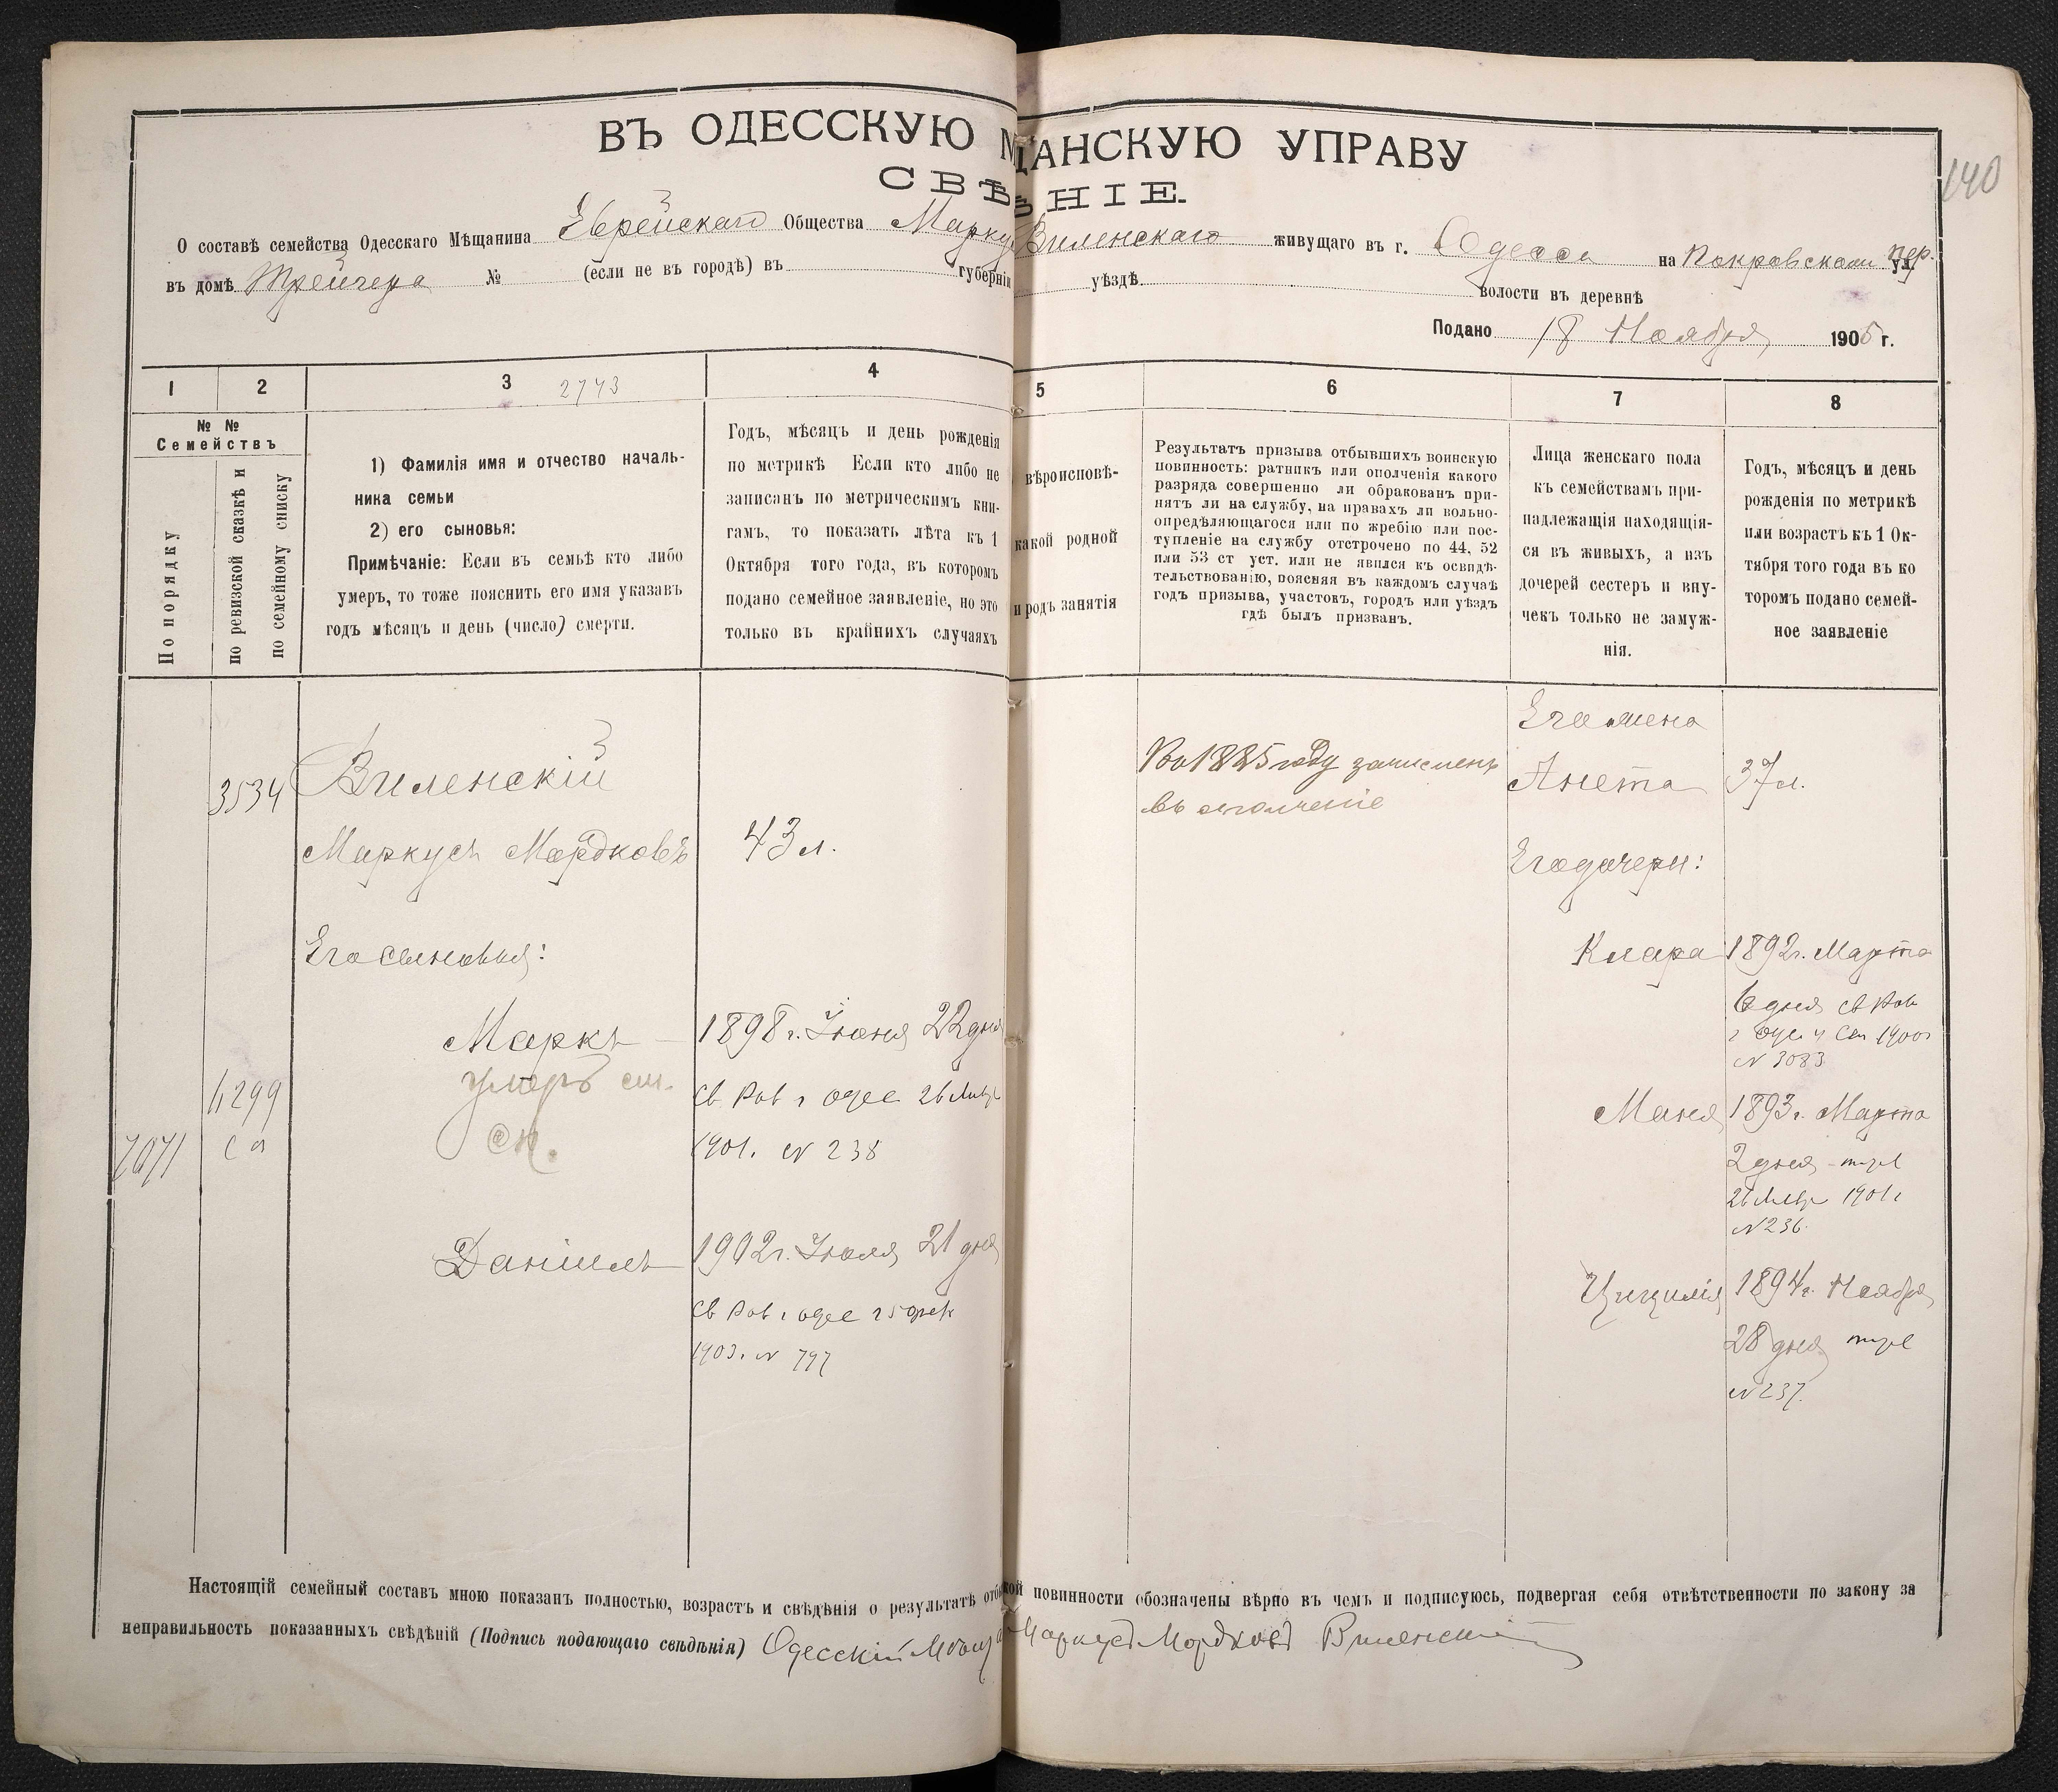 ВЪ ОДЕССКУЮ М ЩАНСКУЮ УПРАВУ
СВѢ НІЕ.
140
О составѣ семейства Одесскаго Мѣщанина Еврейскаго Общества Марку Виленскаго живущаго въ г. Одесса на Покровскомъ пер. ул.
въ домѣ Трейгера № (если не въ городѣ) въ губерніи уѣздѣ волости въ деревнѣ
Подано 18 Ноября 1905 г.
1 2 3 2743 4 5 6 7 8
№ №
Семействъ
По порядку
по ревизской сказкѣ и
по семейному списку
1) Фамилія имя и отчество началь-
ника семьи
2) его сыновья:
Примѣчаніе: Если въ семьѣ кто либо
умеръ, то тоже пояснить его имя указавъ
годъ мѣсяцъ и день (число) смерти.
Годъ, мѣсяцъ и день рожденія
по метрикѣ Если кто либо не
записанъ по метрическимъ кни-
гамъ, то показать лѣта къ 1
Октября того года, въ которомъ
подано семейное заявленіе, но это
только въ крайнихъ случаяхъ
вѣроисповѣ-
какой родной
и родъ занятія
Результатъ призыва отбывшихъ воинскую
повинность: ратникъ или ополченія какого
разряда совершенно ли обракованъ при-
нятъ ли на службу, на правахъ ли вольно-
опредѣляющагося или по жребію или пос-
тупленіе на службу отстрочено по 44, 52
или 53 ст уст. или не явился къ освидѣ-
тельствованію, поясняя въ каждомъ случаѣ
годъ призыва, участокъ, городъ или уѣздъ
гдѣ былъ призванъ.
Лица женскаго пола
къ семействамъ при-
надлежащія находящія-
ся въ живыхъ, а изъ
дочерей сестеръ и вну-
чекъ только не замуж-
нія.
Годъ, мѣсяцъ и день
рожденія по метрикѣ
или возрастъ къ 1 Ок-
тября того года въ ко
торомъ подано семей-
ное заявленіе
3534 Виленскій
Маркусъ Мордковъ 43 л.
Его сыновья:
Маркъ 1898 г. Іюня 22 дня
умеръ
Св Рав г Одес 26
1901. N 238
4299
7071
Даніилъ 1902 г. Іюля 21 дня
Св Рав г Одес
1903. N 797
Въ 1885 году зачисленъ
въ ополченіе
Его жена
Анета 37 л.
Его дочери:
Клара 1892 г. Марта
6 дня Св Рав
1900 г
N 3083
Маня 1893 г. Марта
2 дня
1901 г
N 236.
Цицилія 1894 г. Ноября
28 дня
N 237.
Настоящій семейный составъ мною показанъ полностью, возрастъ и свѣдѣнія о результатѣ отб кой повинности обозначены вѣрно въ чемъ и подписуюсь, подвергая себя отвѣтственности по закону за
неправильность показанныхъ свѣдѣній (Подпись подающаго свѣдѣнія) Одесскій Мѣща Маркусъ Мордковъ Виленскій